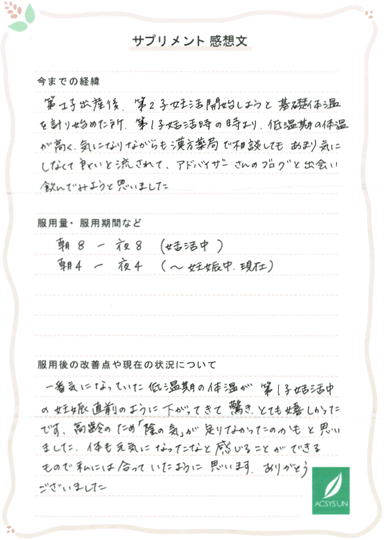 サプリメント 感想文
今までの経緯
第1子出産後、第2子妊活開始しようと基礎体温
を計り始めた所、第1子妊活時の時より、低温期の体温
が高く、気になりながらも漢方薬局で相談しても あまり気に
しなくて良いと流されて、アドバイザーさんのブログと出会い
飲んでみようと思いました
服用量・服用期間など
朝8 ー 夜8 (妊活中)
朝4 ー 夜4 (〜妊娠中.現在)
服用後の改善点や現在の状況について
一番気になっていた低温期の体温が 第1子妊活中
の妊娠直前のように下がってきて 驚き、とても嬉しかった
です、高齢のため「陰の気」が足りなかったのかも と思い
ました、体も元気になったなと感じることができる
もので私には合っていたように思います、ありがとう
ございました
ACSYSUN